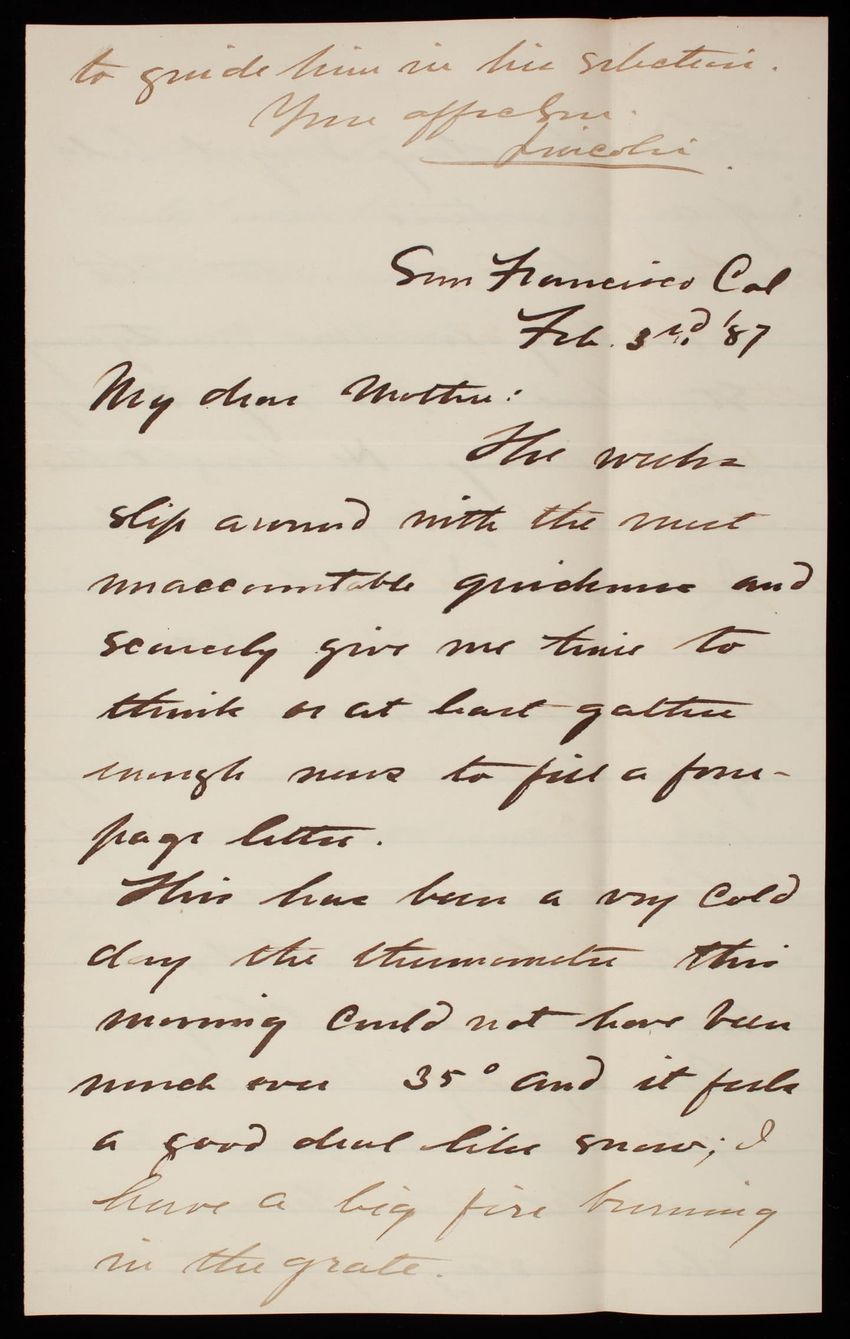 to guide him in his selection.
Your affec Son.
Lincoln.
San Francisco Cal
Feb. 3rd, '87
My dear Mother:
The weeks
slip around with the most
unaccountable quickness and
scarcely give me time to
think or at least gather
enough news to fill a four-
page letter.
This has been a very cold
day the thermometer this
morning could not have been
much over 35° and it feels
a good deal like snow; I
have a big fire burning
in the grate.